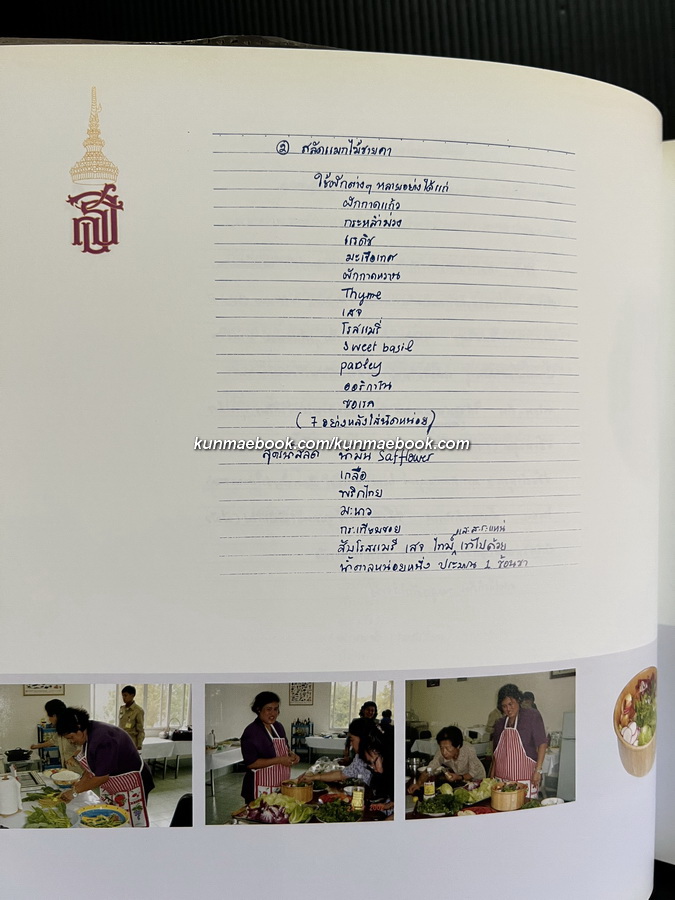 ② สลัดแมกไม้ชายคา
ใช้ผักต่างๆ หลายอย่างได้แก่
ผักกาดแก้ว
กระหล่ำม่วง
แรดิช
มะเขือเทศ
ผักกาดหวาน
Thyme
เสจ
โรสแมรี่
Sweet basil
parsley
ออริกาโน
ซอเรล
( 7 อย่างหลังใส่นิดหน่อย)
kunmaebook.com/kunmaebook.com
น้ำมัน Safflower
เกลือ
พริกไทย
มะนาว
กระเทียมซอย
และสะระแหน่
สับโรสแมรี่ เสจ ไทม์ เข้าไปด้วย
น้ำตาลหน่อยหนึ่ง ประมาณ 1 ช้อนชา